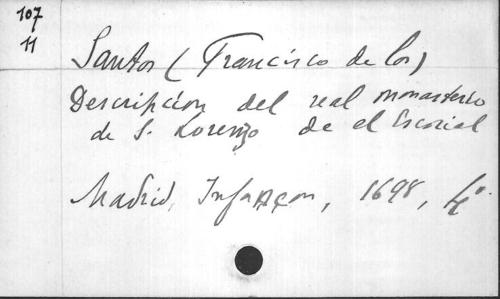 107
11
Santos (Francisco de los)
Descripcion del real monasterio
de S. Lorenzo de el Escorial
Madrid, Infançon, 1698, 4º